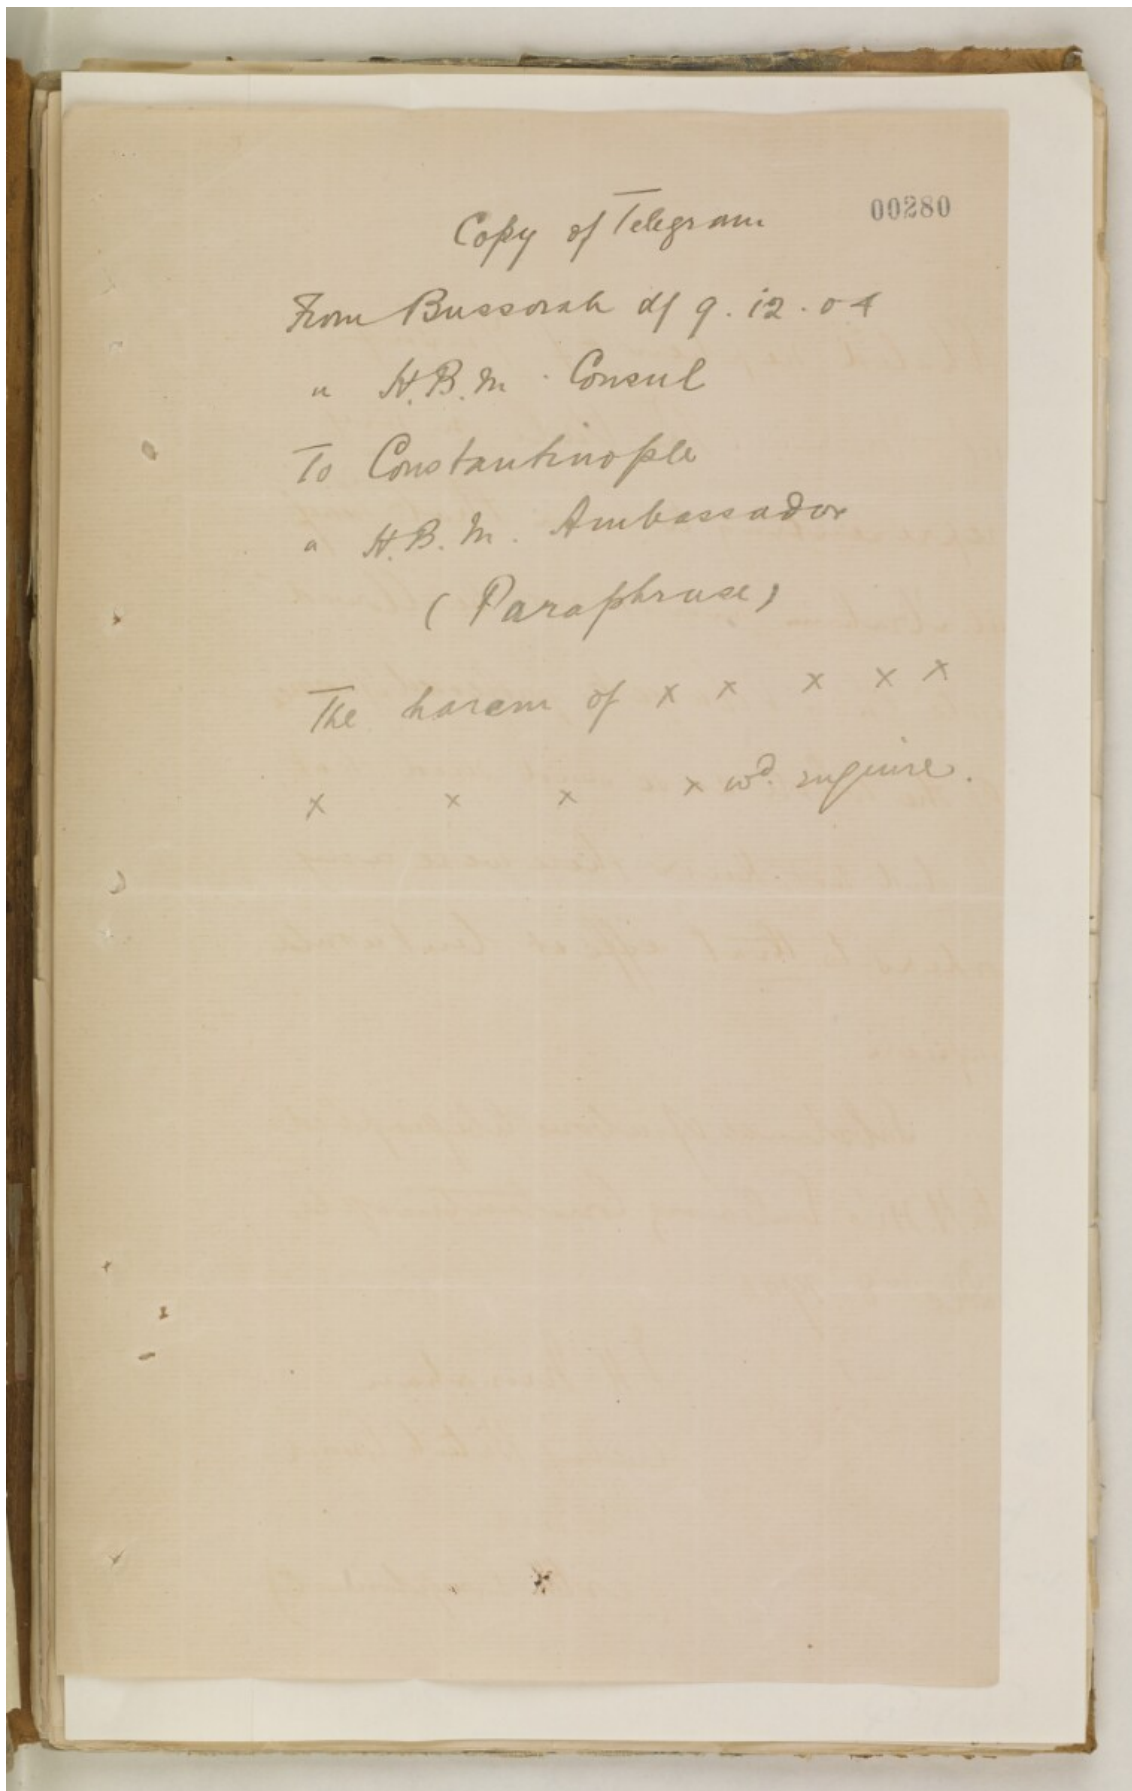 00280
Copy of Telegram
From Bussorah d/ 9.12.04
" H.B.M. Consul
To Constantinople
" H.B.M. Ambassador
(Paraphrase)
The harem of x x x x x
x x x x wd. enquire.